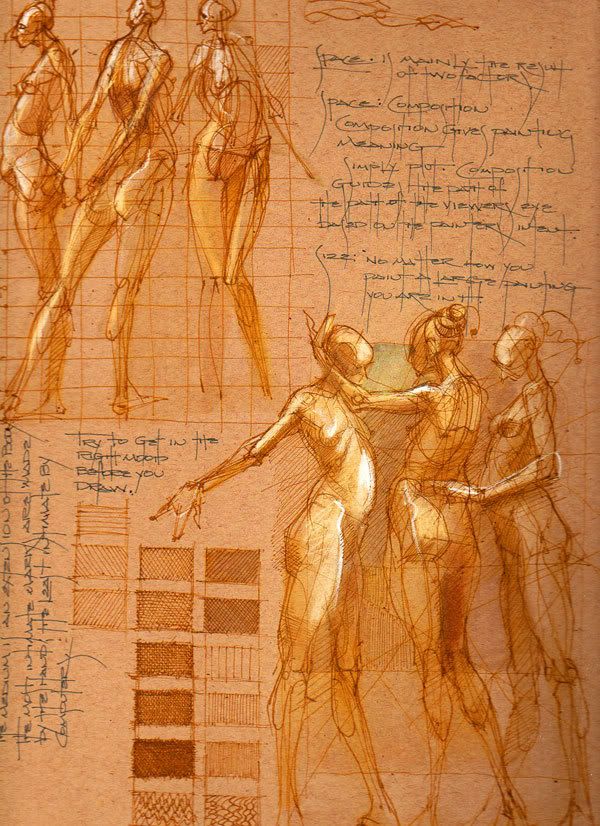 SPACE: IS MAINLY THE RESULT
OF TWO FACTORS
SPACE: COMPOSITION
COMPOSITION GIVES PAINTING
MEANING
SIMPLY PUT: COMPOSITION
GUIDES THE PATH OF
THE PATH OF THE VIEWERS EYE
BASED ON THE PAINTERS INTENT.
SIZE: NO MATTER HOW YOU
PAINT A LARGE PAINTING
YOU ARE IN IT.
TRY TO GET IN THE
RIGHT MOOD
BEFORE YOU
DRAW!
THE MEDIUM IS AN EXTENTION OF THE BODY
THE MOST INTIMATE MARKS ARE MADE
BY THE HAND, THE LEAST INTIMATE BY
COMPUTERS.